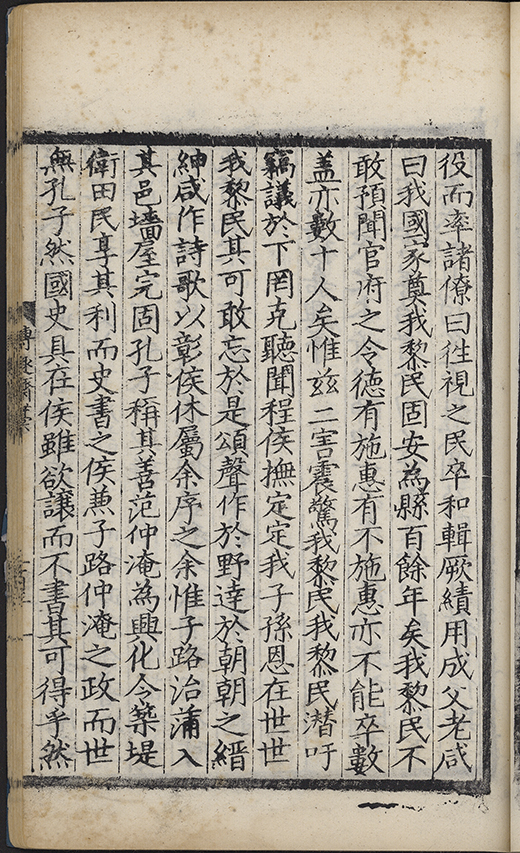 役而率諸僚曰徃視之民卒和輯厥績用成父老咸
曰我國家奠我黎民固安為縣百餘年矣我黎民不
敢預聞官府之令徳有施惠有不施惠亦不能卒數
盖亦數十人矣惟兹二害震驚我黎民我黎民潜吁
竊議於下罔克聽聞程侯撫定定我子孫恩在世世
我黎民其可敢忘於是頌聲作於野達於朝朝之縉
紳咸作詩歌以彰侯休屬余序之余惟子路治蒲入
其邑墻屋完固孔子稱其善范仲淹為興化令築堤
衛田民享其利而史書之侯蕪子路仲淹之政而世
無孔子然國史具在侯雖欲讓而不書其可得乎然